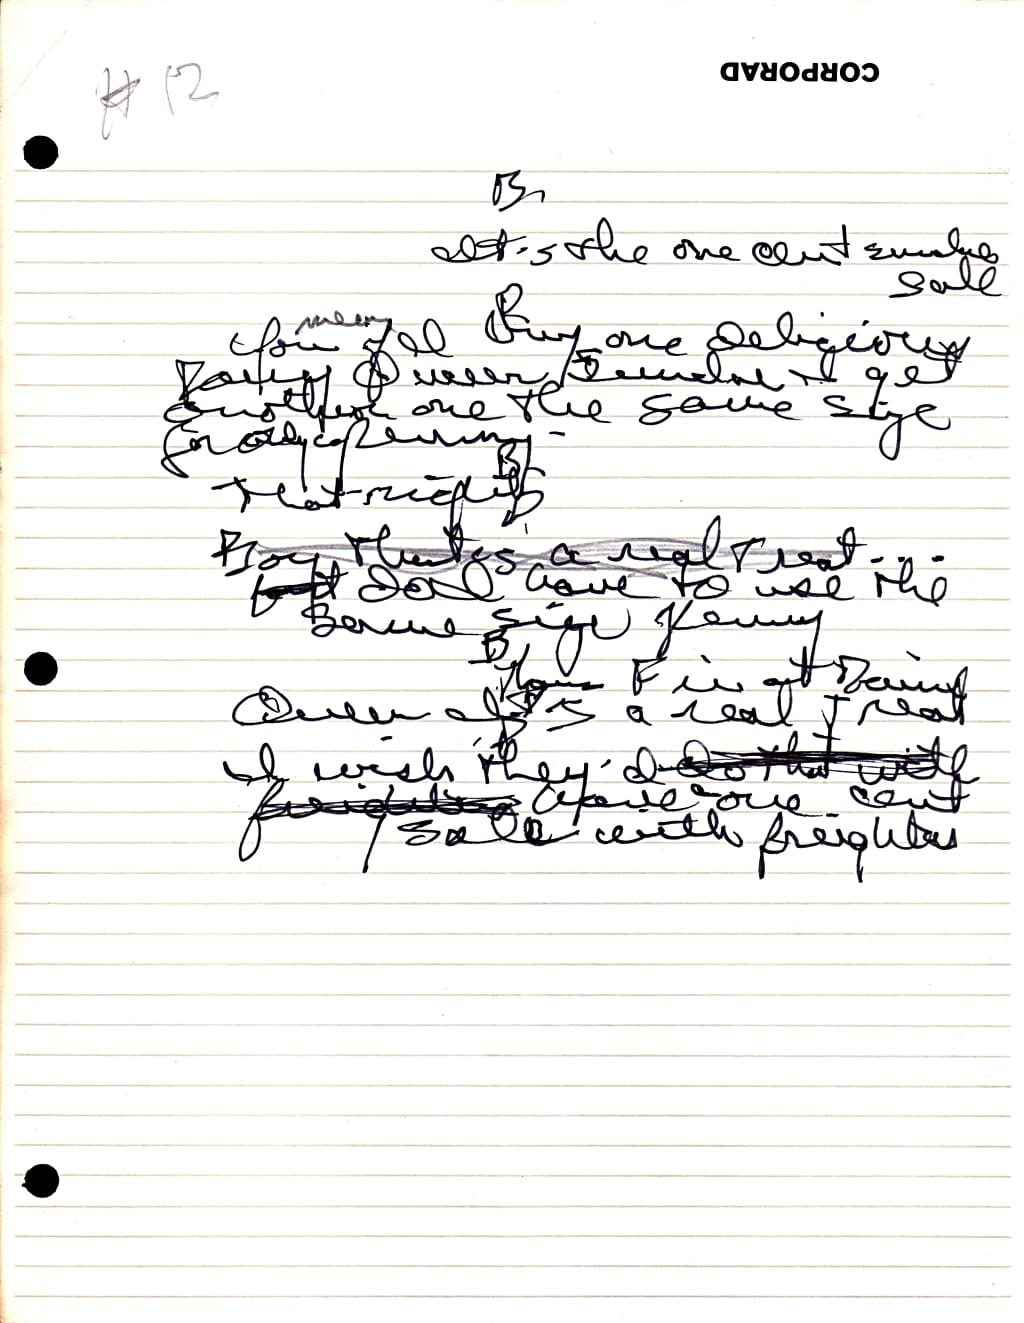 CORPORAD
# 12
B
It's the one cent sundae
sale
mean
You I Buy one delicious
Dairy Queen Sundae & get
another one the same size
for only a penny -
B
That right
B
Boy that's a real treat...
but I don't have to use the
same size penny
B
From Dairy
Queen It's a real Treat
I wish they'd do that with
have one cent
sale with freighters